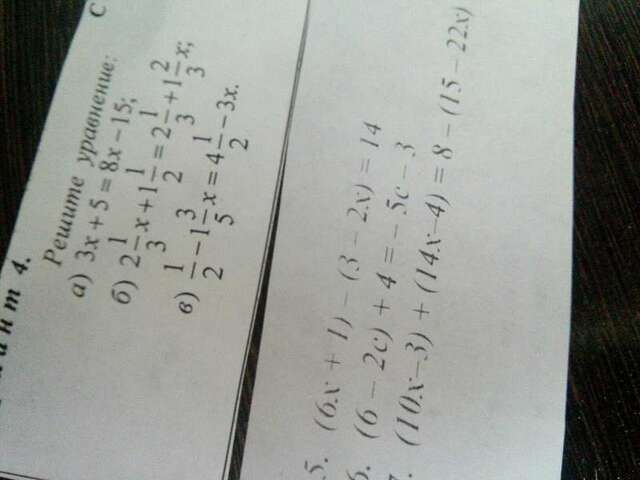 ант 4.
С
Решите уравнение:
а) 3x + 5 = 8x − 15;
б) 2 1/3 x + 1 1/2 = 2 1/3 + 1 2/3 x;
в) 1/2 − 1 3/5 x = 4 1/2 − 3x.
5. (6x + 1) − (3 − 2x) = 14
6. (6 − 2c) + 4 = − 5c − 3
7. (10x−3) + (14x−4) = 8 − (15 − 22x)